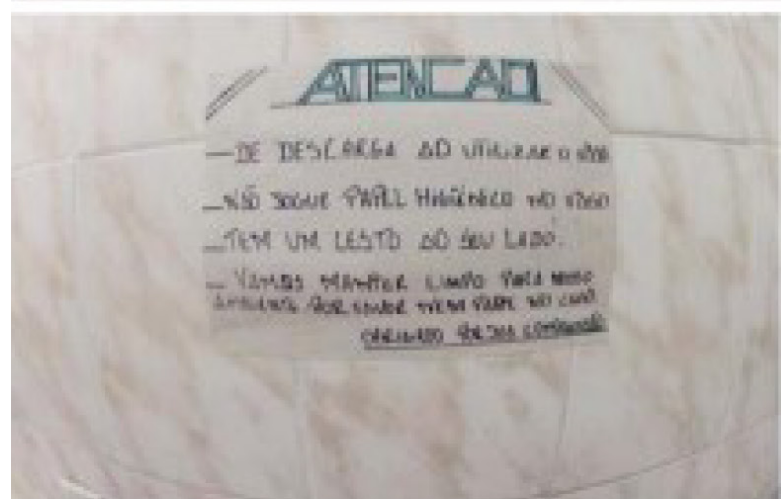 ATENCAO
— DE DESCARGA AO UTILIZAR O VASO
— NÃO JOGUE PAPEL HIGIÊNICO NO VASO
— TEM UM CESTO AO SEU LADO.
— VAMOS MANTER LIMPO PARA NOSSO
AMBIENTE POR FAVOR
OBRIGADO